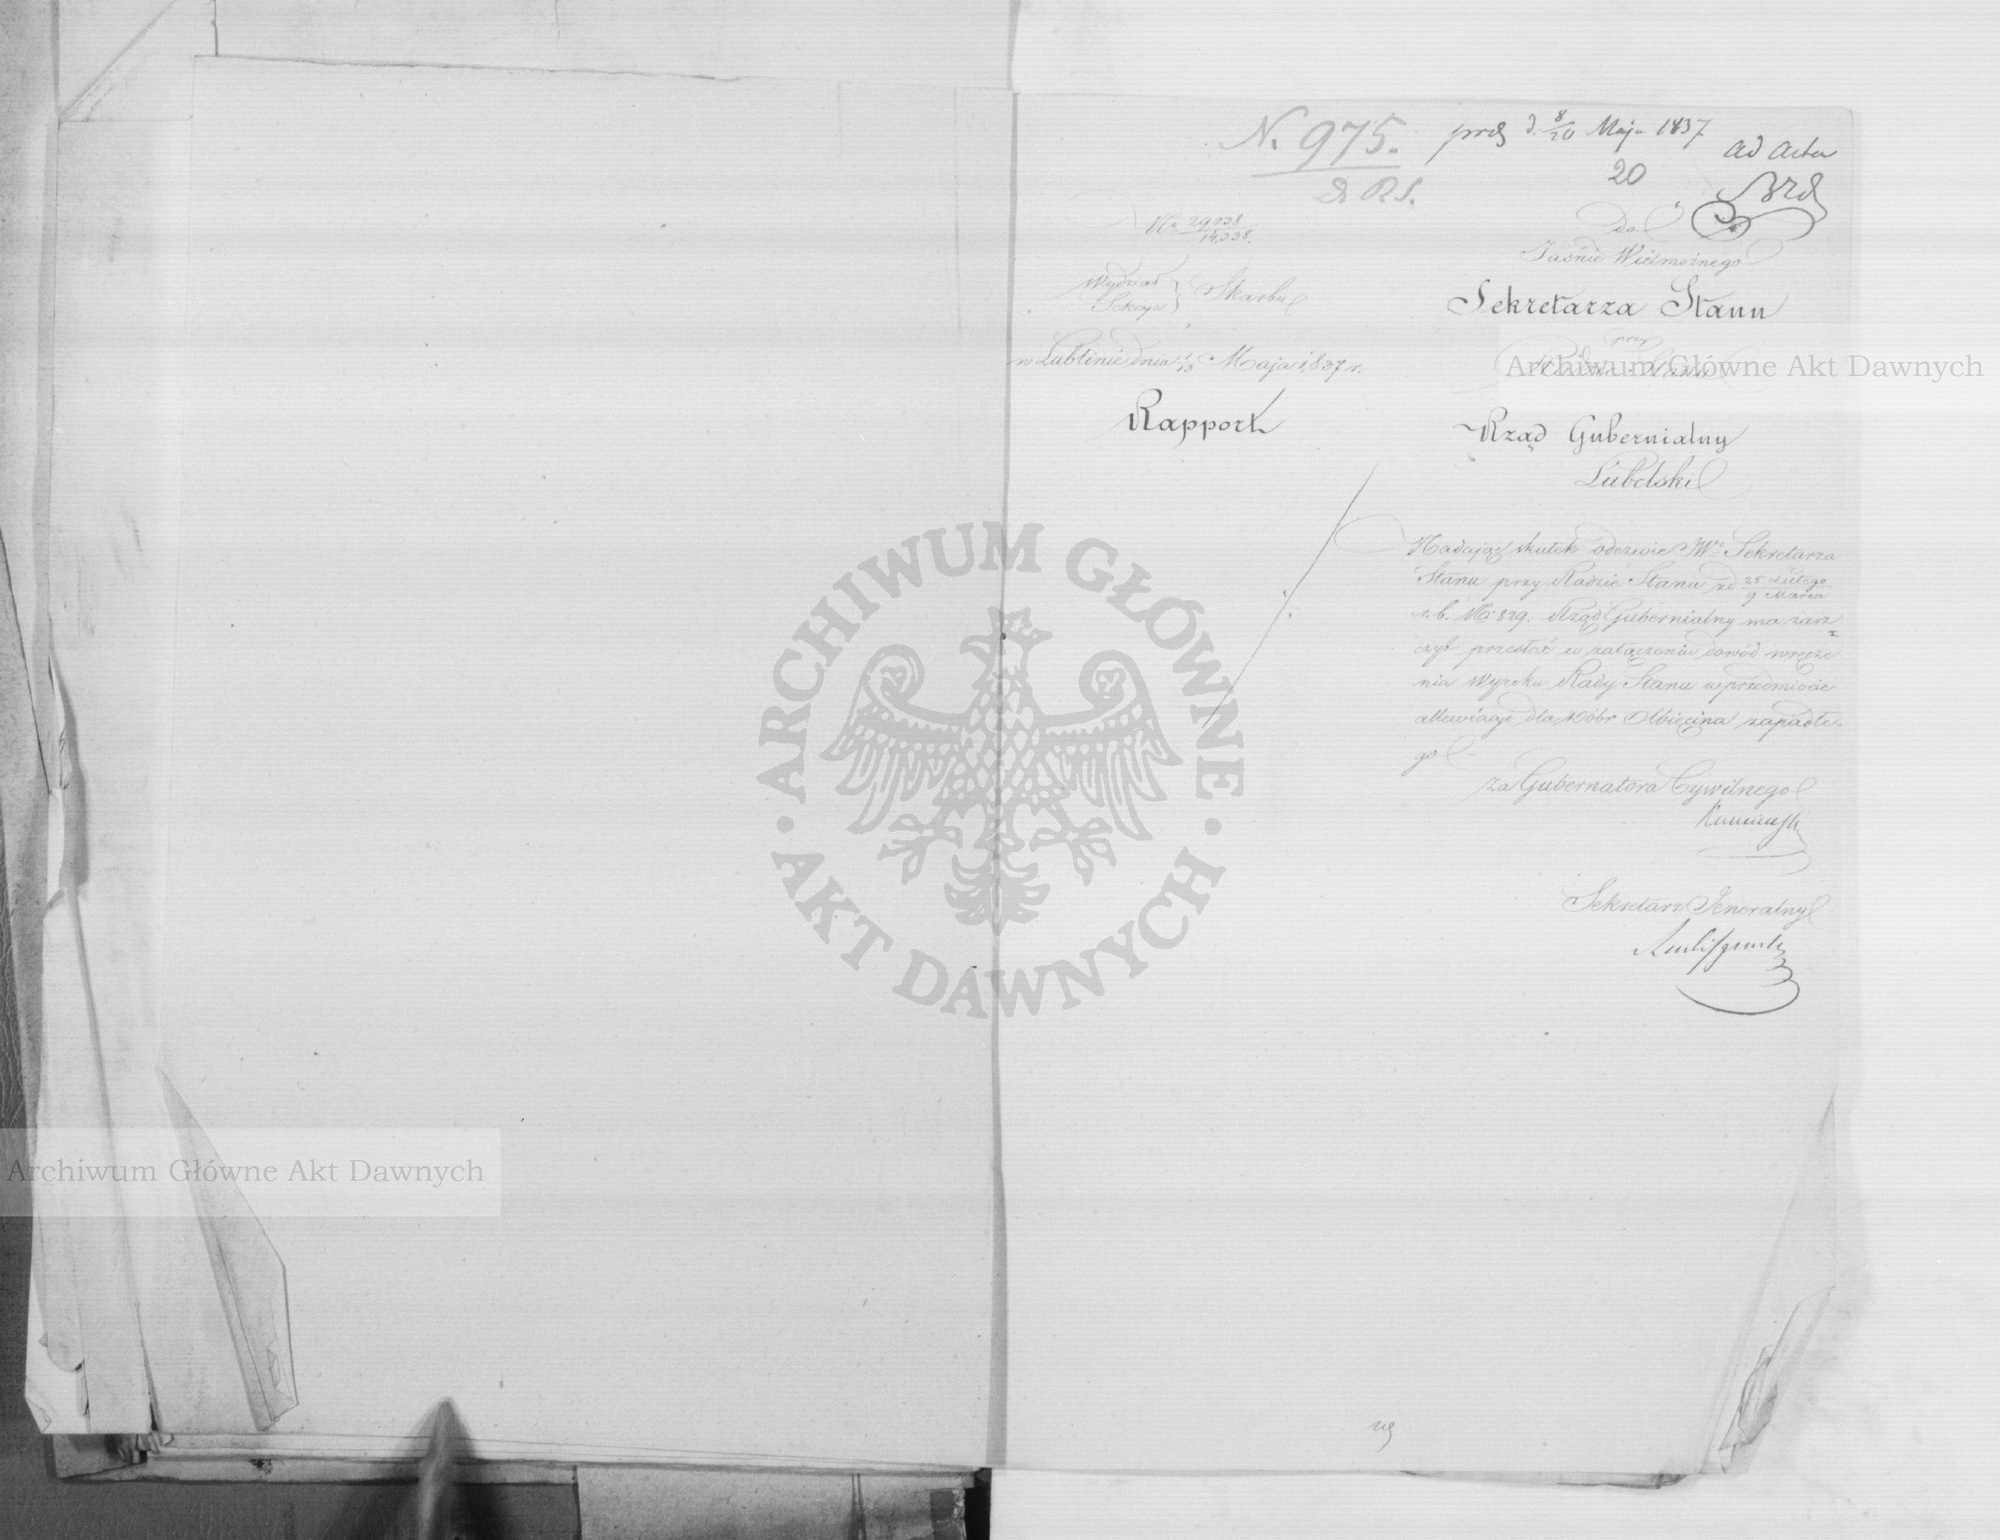 N. 975.
D. R. S.
prez d. 8/20 Maja 1837
20
ad acta
No 29,938/14,338.
Wydział
Sekcya } Skarbu
w Lublinie dnia 1/13 Maja 1837 r.
Rapport
do
Jaśnie Wielmożnego
Sekretarza Stanu
przy
Radzie Stanu
Rząd Gubernialny
Lubelski
Nadając skutek odezwie JWo Sekretarza
Stanu przy Radzie Stanu zd 25 Lutego/9 Marca
r. b. No 829. Rząd Gubernialny ma zasz=
czyt przesłać w załączeniu dowód wręcze
nia Wyroku Rady Stanu w przedmiocie
allewiacyi dla Dóbr Olbięcina zapadłe-
go
za Gubernatora Cywilnego
Sekretarz Jeneralny
ARCHIWUM GŁÓWNE
AKT DAWNYCH
Archiwum Główne Akt Dawnych
Archiwum Główne Akt Dawnych